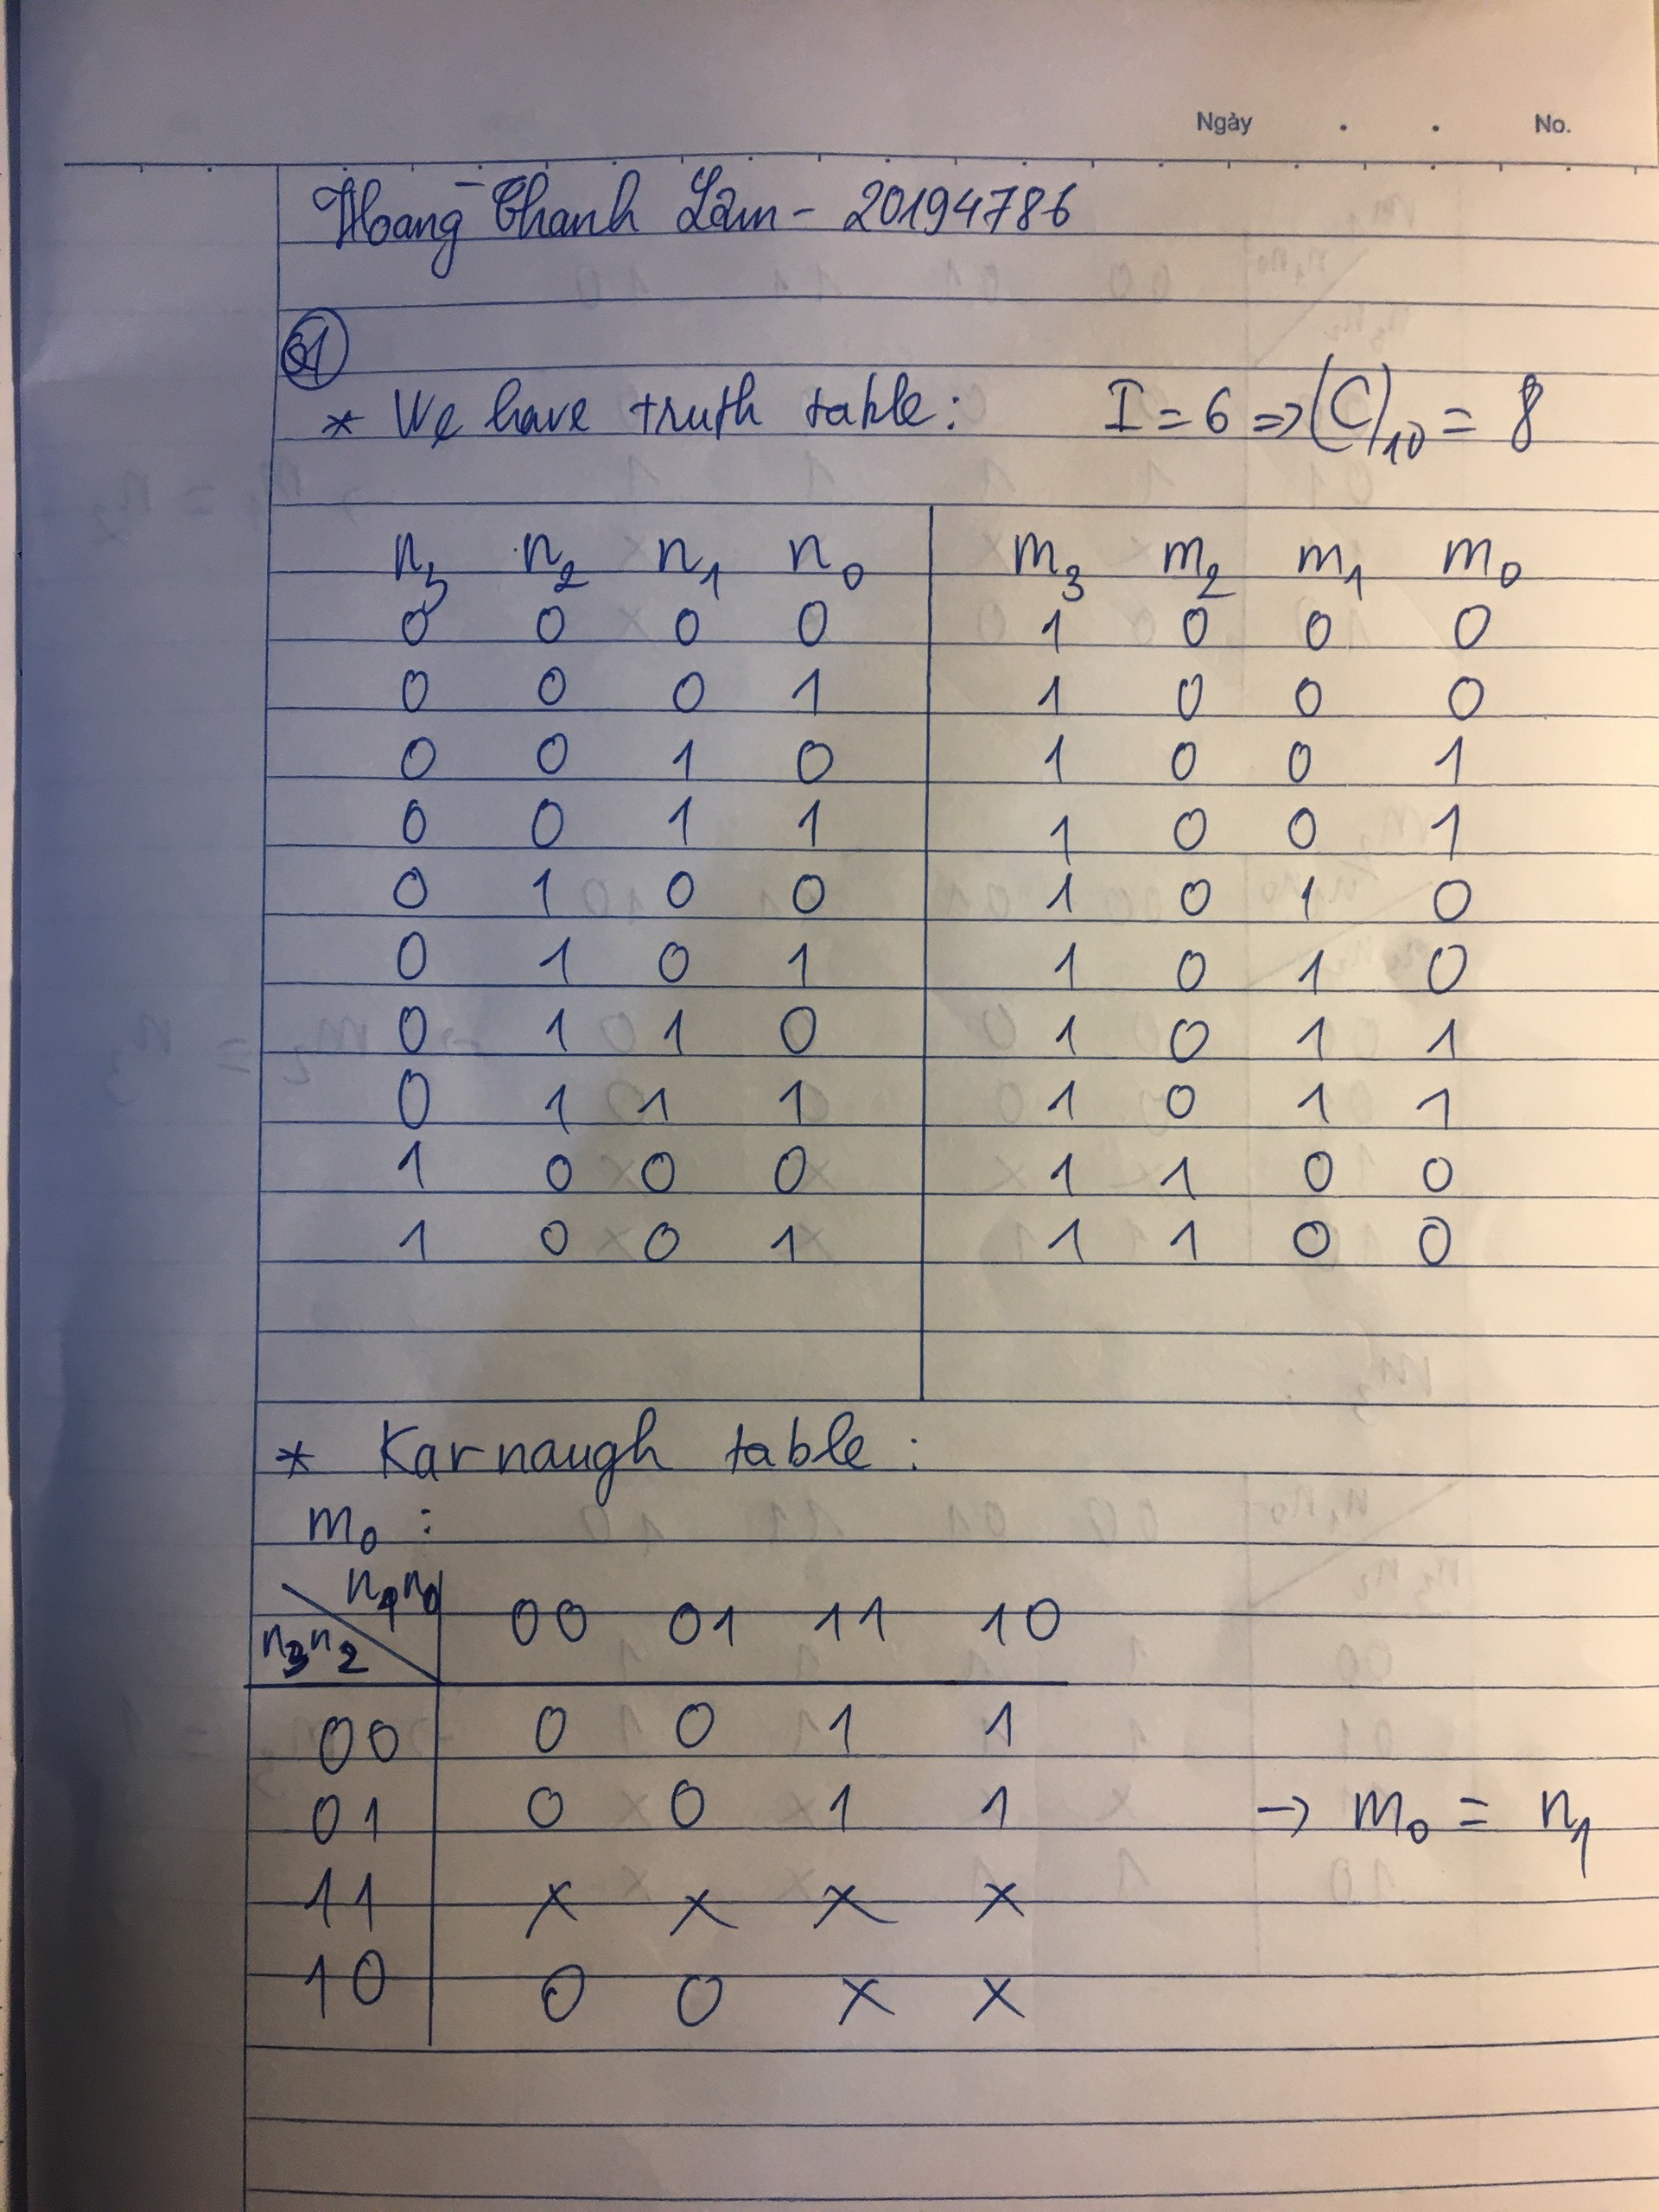 Ngày . . No.
Hoang Thanh Lâm - 20194786
Q1
* We have truth table: I = 6 => (C)₁₀ = 8
n₃ n₂ n₁ n₀ m₃ m₂ m₁ m₀
0 0 0 0 1 0 0 0
0 0 0 1 1 0 0 0
0 0 1 0 1 0 0 1
0 0 1 1 1 0 0 1
0 1 0 0 1 0 1 0
0 1 0 1 1 0 1 0
0 1 1 0 1 0 1 1
0 1 1 1 1 0 1 1
1 0 0 0 1 1 0 0
1 0 0 1 1 1 0 0
* Karnaugh table:
m₀ :
n₁n₀ 00 01 11 10
n₃n₂
00 0 0 1 1
01 0 0 1 1 → m₀ = n₁
11 x x x x
10 0 0 x x